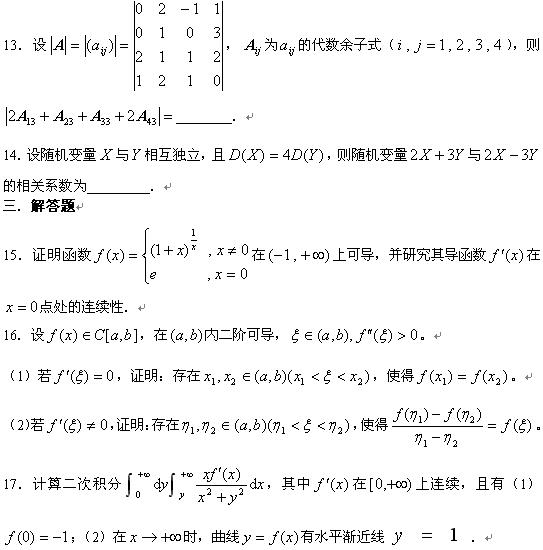 13．设 |A| = |(a_{ij})| = \begin{vmatrix} 0 & 2 & -1 & 1 \\ 0 & 1 & 0 & 3 \\ 2 & 1 & 1 & 2 \\ 1 & 2 & 1 & 0 \end{vmatrix}， A_{ij} 为 a_{ij} 的代数余子式（i , j = 1 , 2 , 3 , 4），则
|2A_{13} + A_{23} + A_{33} + 2A_{43}| = ________．
14．设随机变量 X 与 Y 相互独立，且 D(X) = 4D(Y)，则随机变量 2X + 3Y 与 2X − 3Y
的相关系数为_________．
三．解答题
15．证明函数 f(x) = \begin{cases} (1+x)^{\frac{1}{x}} & , x ≠ 0 \\ e & , x = 0 \end{cases} 在 (−1, +∞) 上可导，并研究其导函数 f′(x) 在
x = 0 点处的连续性．
16．设 f(x) ∈ C[a,b]，在 (a,b) 内二阶可导，ξ ∈ (a,b), f″(ξ) > 0。
（1）若 f′(ξ) = 0，证明：存在 x_1, x_2 ∈ (a,b)(x_1 < ξ < x_2)，使得 f(x_1) = f(x_2)。
（2)若 f′(ξ) ≠ 0,证明：存在 η_1, η_2 ∈ (a,b)(η_1 < ξ < η_2)，使得 \frac{f(η_1) − f(η_2)}{η_1 − η_2} = f(ξ)。
17．计算二次积分 \int_0^{+∞} dy \int_y^{+∞} \frac{xf′(x)}{x^2 + y^2} dx，其中 f′(x) 在 [0,+∞) 上连续，且有（1）
f(0) = −1；（2）在 x → +∞ 时，曲线 y = f(x) 有水平渐近线 y = 1．